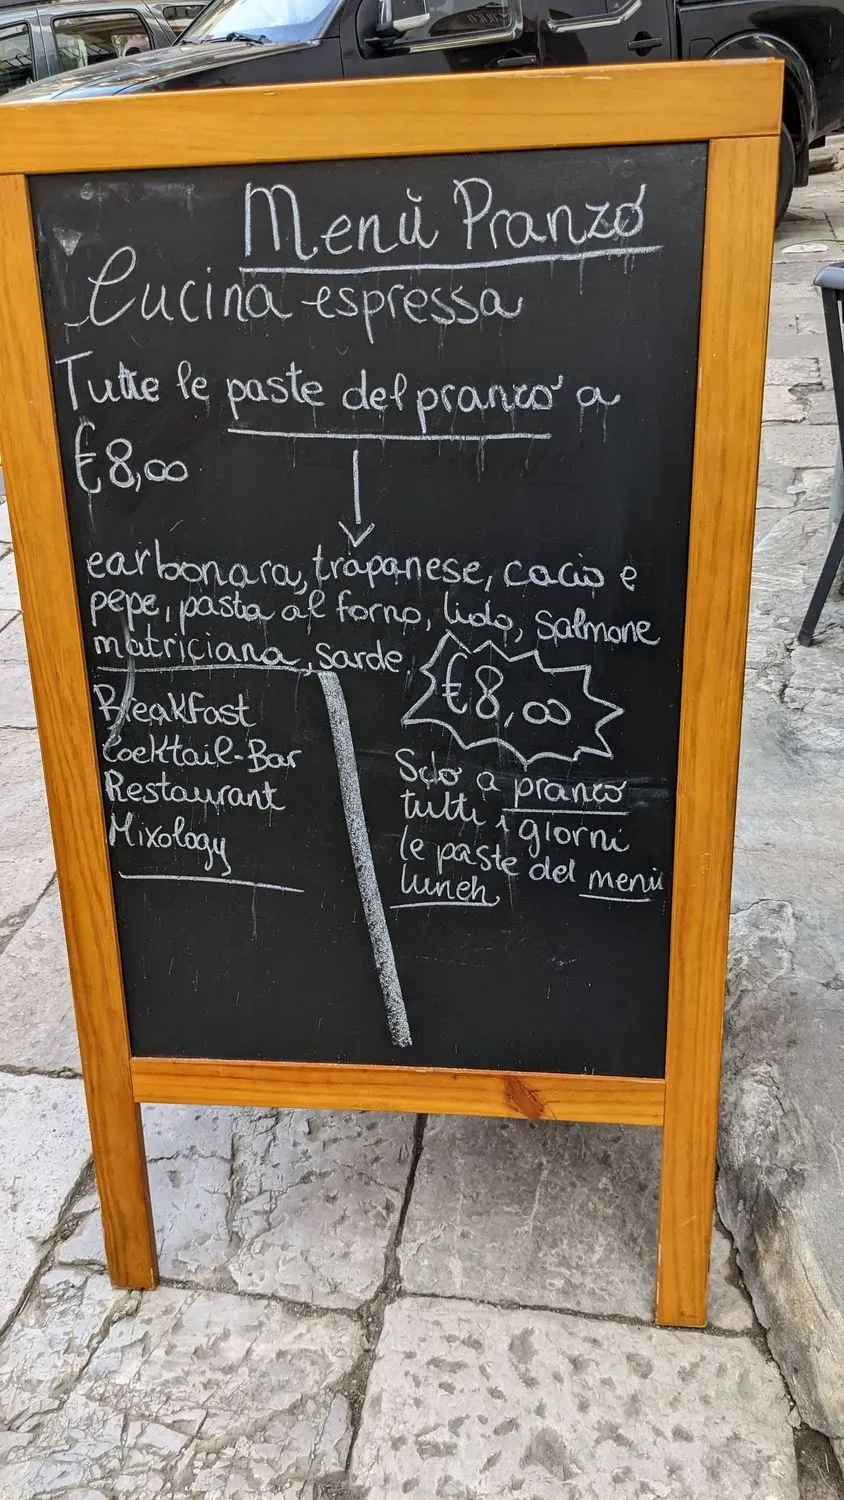 Menù Pranzo
Cucina espressa
Tutte le paste del pranzo a
€8,00
carbonara, trapanese, cacio e
pepe, pasta al forno, lido, salmone
matriciana, sarde,
€8,00
Breakfast
Cocktail-Bar
Restaurant
Mixology
Solo a pranzo
tutti i giorni
le paste del menù
lunch